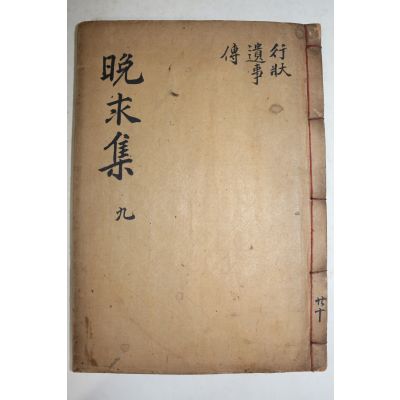 行狀
遺事
傳
晩求集 九
共十